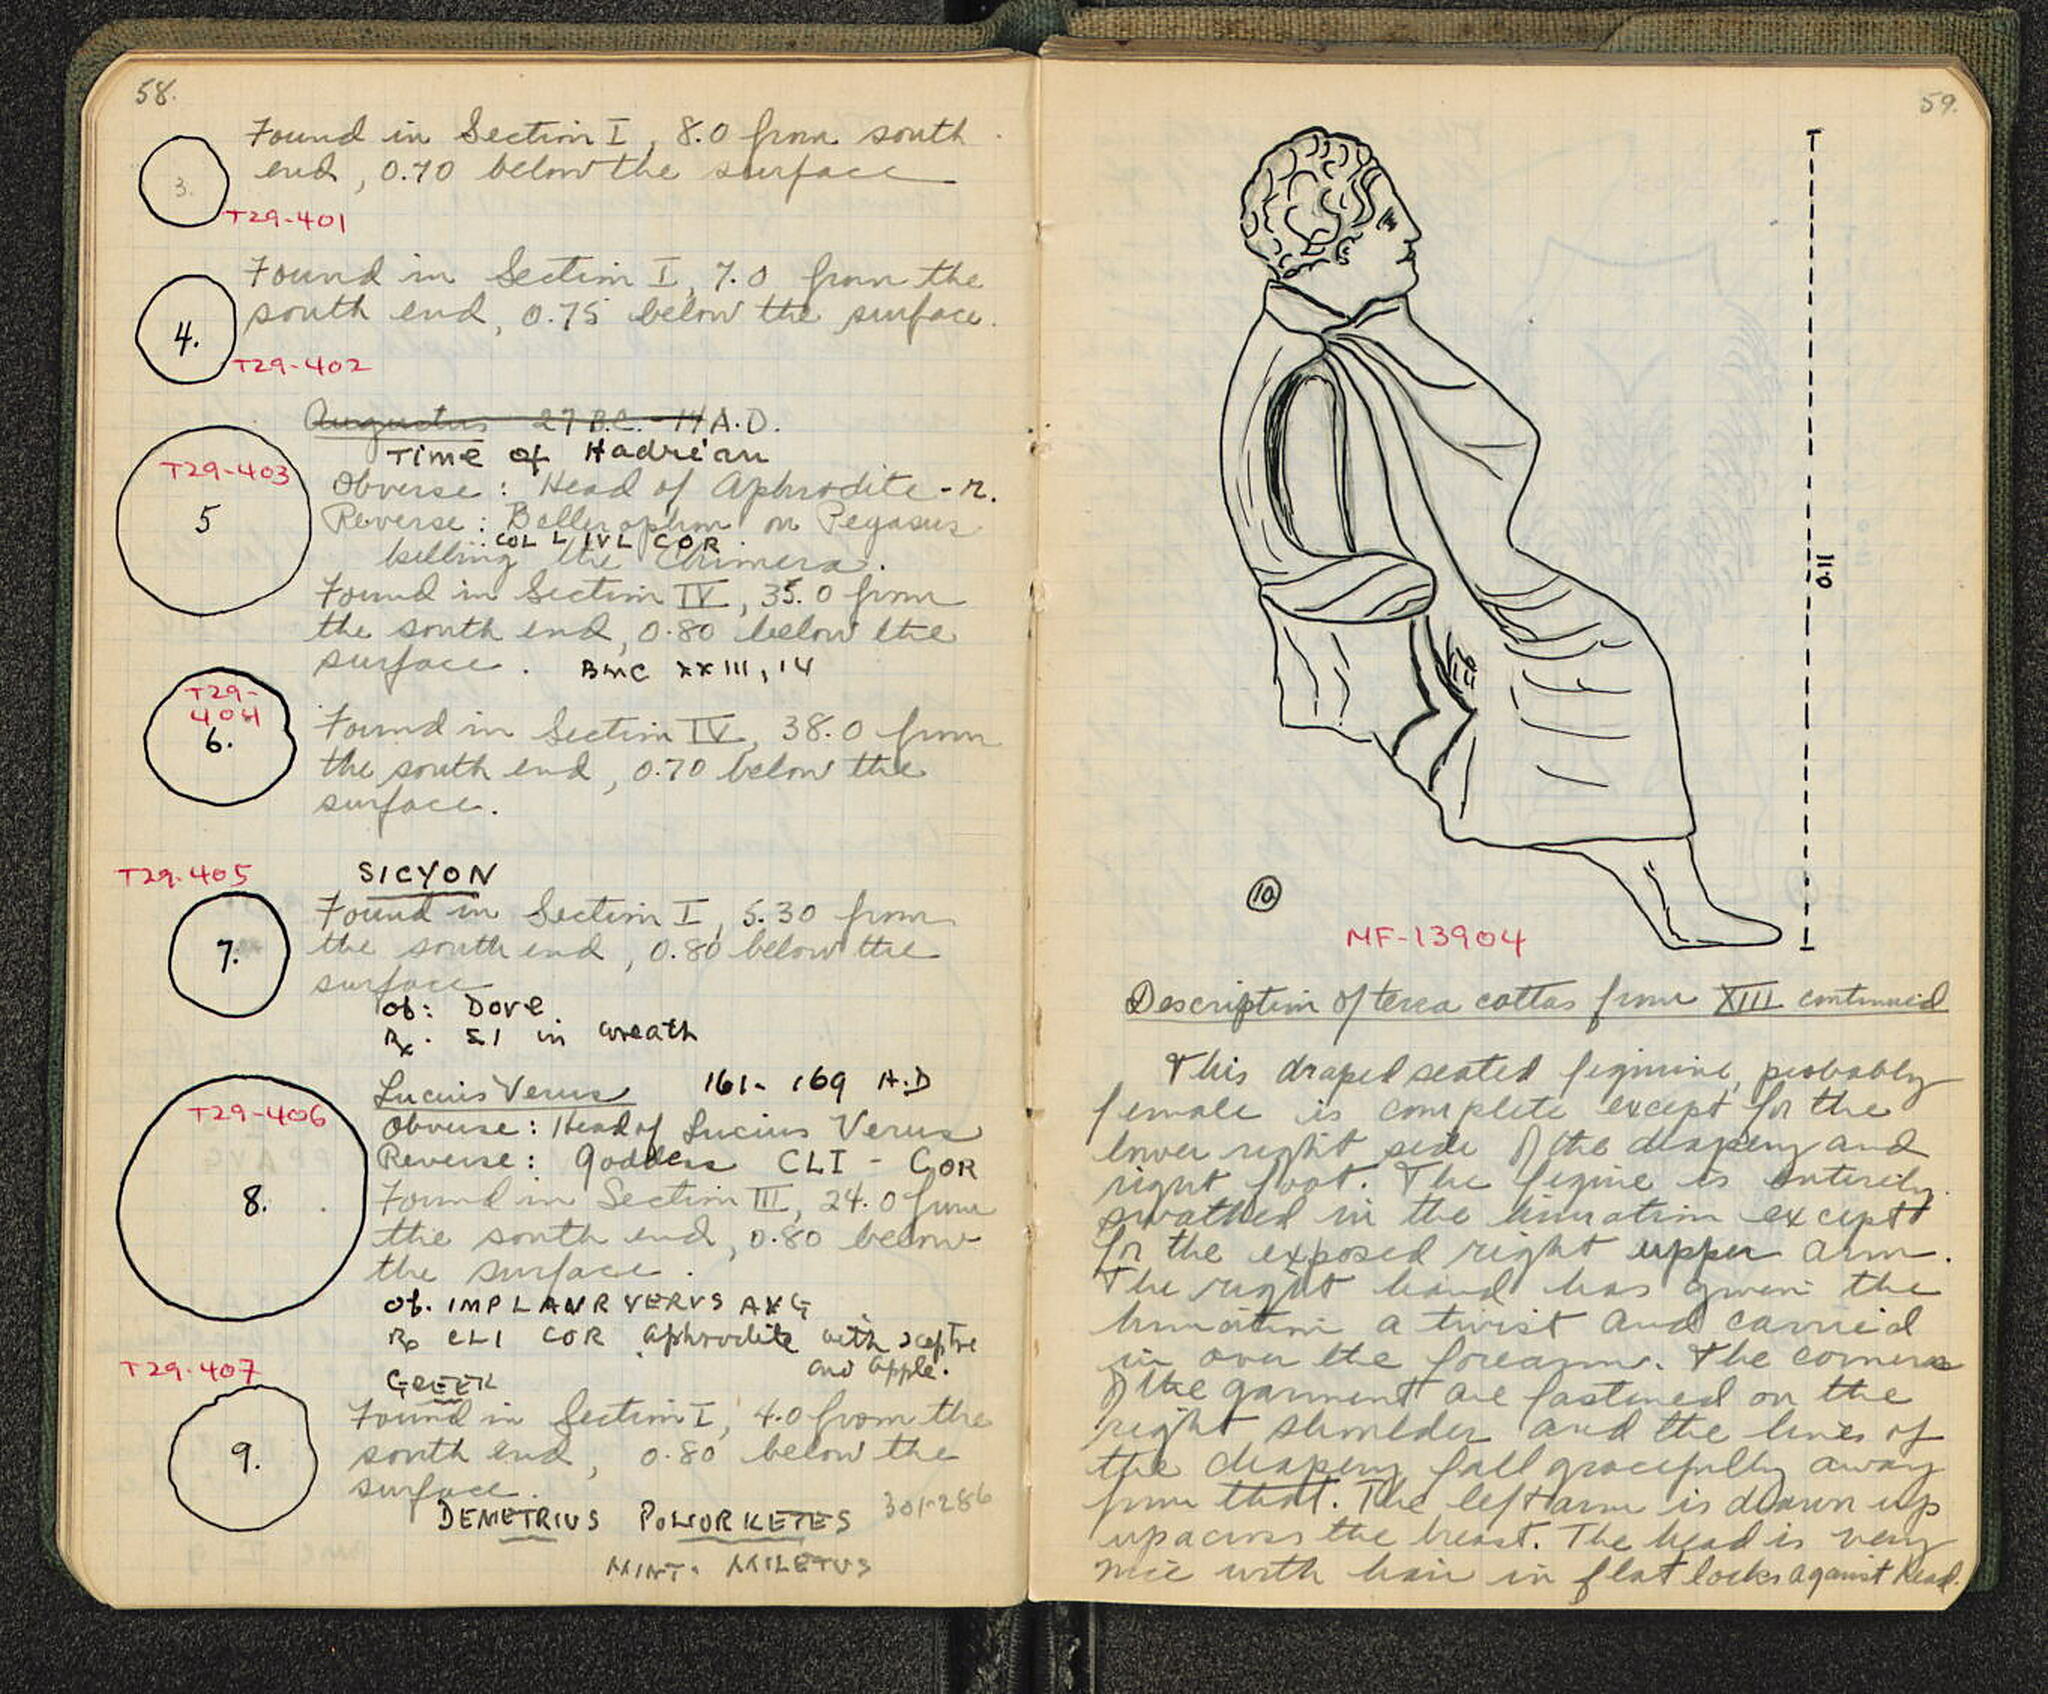 58.
3.
Found in Section I, 8.0 from south
end, 0.70 below the surface
T29-401
4.
Found in Section I, 7.0 from the
south end, 0.75 below the surface.
T29-402
Augustus 27 B.C. - 14 A.D.
Time of Hadrian
T29-403
5
Obverse: Head of Aphrodite - r.
Reverse: Bellerophon on Pegasus
COL L IVL COR
killing the Chimera.
Found in Section IV, 35.0 from
the south end, 0.80 below the
surface. BMC XXIII, 14
T29-
404
6.
Found in Section IV, 38.0 from
the south end, 0.70 below the
surface.
T29-405
SICYON
7.
Found in Section I, 5.30 from
the south end, 0.80 below the
surface
Ob: Dove
Rx. ΣI in wreath
Lucius Verus 161-169 A.D
T29-406
8.
Obverse: Head of Lucius Verus
Reverse: Goddess CLI - COR
Found in Section III, 24.0 from
the south end, 0.80 below
the surface.
Ob. IMP L AVR VERVS AVG
Rx CLI COR Aphrodite with sceptre
and apple.
T29-407
GREEK
9.
Found in Section I, 4.0 from the
south end, 0.80 below the
surface.
DEMETRIUS POLIORKETES 301-286
MINT. MILETUS
59.
0.11
10
MF-13904
Description of terra cottas from XIII continued
This draped seated figurine, probably
female is complete except for the
lower right side of the drapery and
right foot. The figure is entirely
swathed in the himation except
for the exposed right upper arm.
The right hand has given the
himation a twist and carried
in over the forearm. The corners
of the garment are fastened on the
right shoulder and the lines of
the drapery fall gracefully away
from that. The left arm is drawn up
up across the breast. The head is very
nice with hair in flat locks against head.